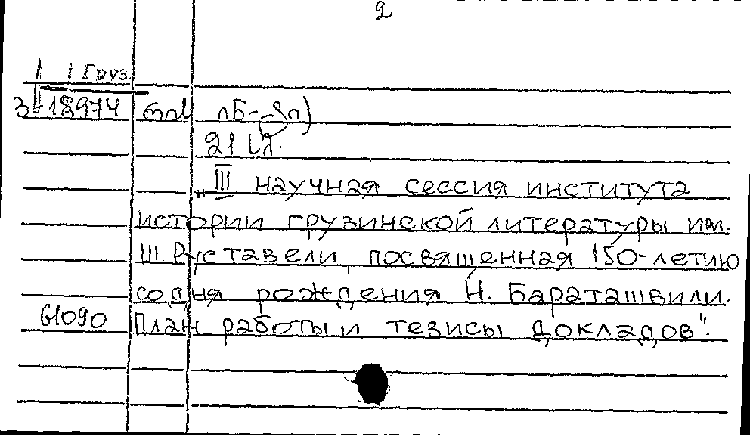 2
1 Груз.
18974
21
"III научная сессия института
истории грузинской литературы им.
Ш Руставели, посвященная 150-летию
со дня рождения Н. Бараташвили.
61090 План работы и тезисы докладов".